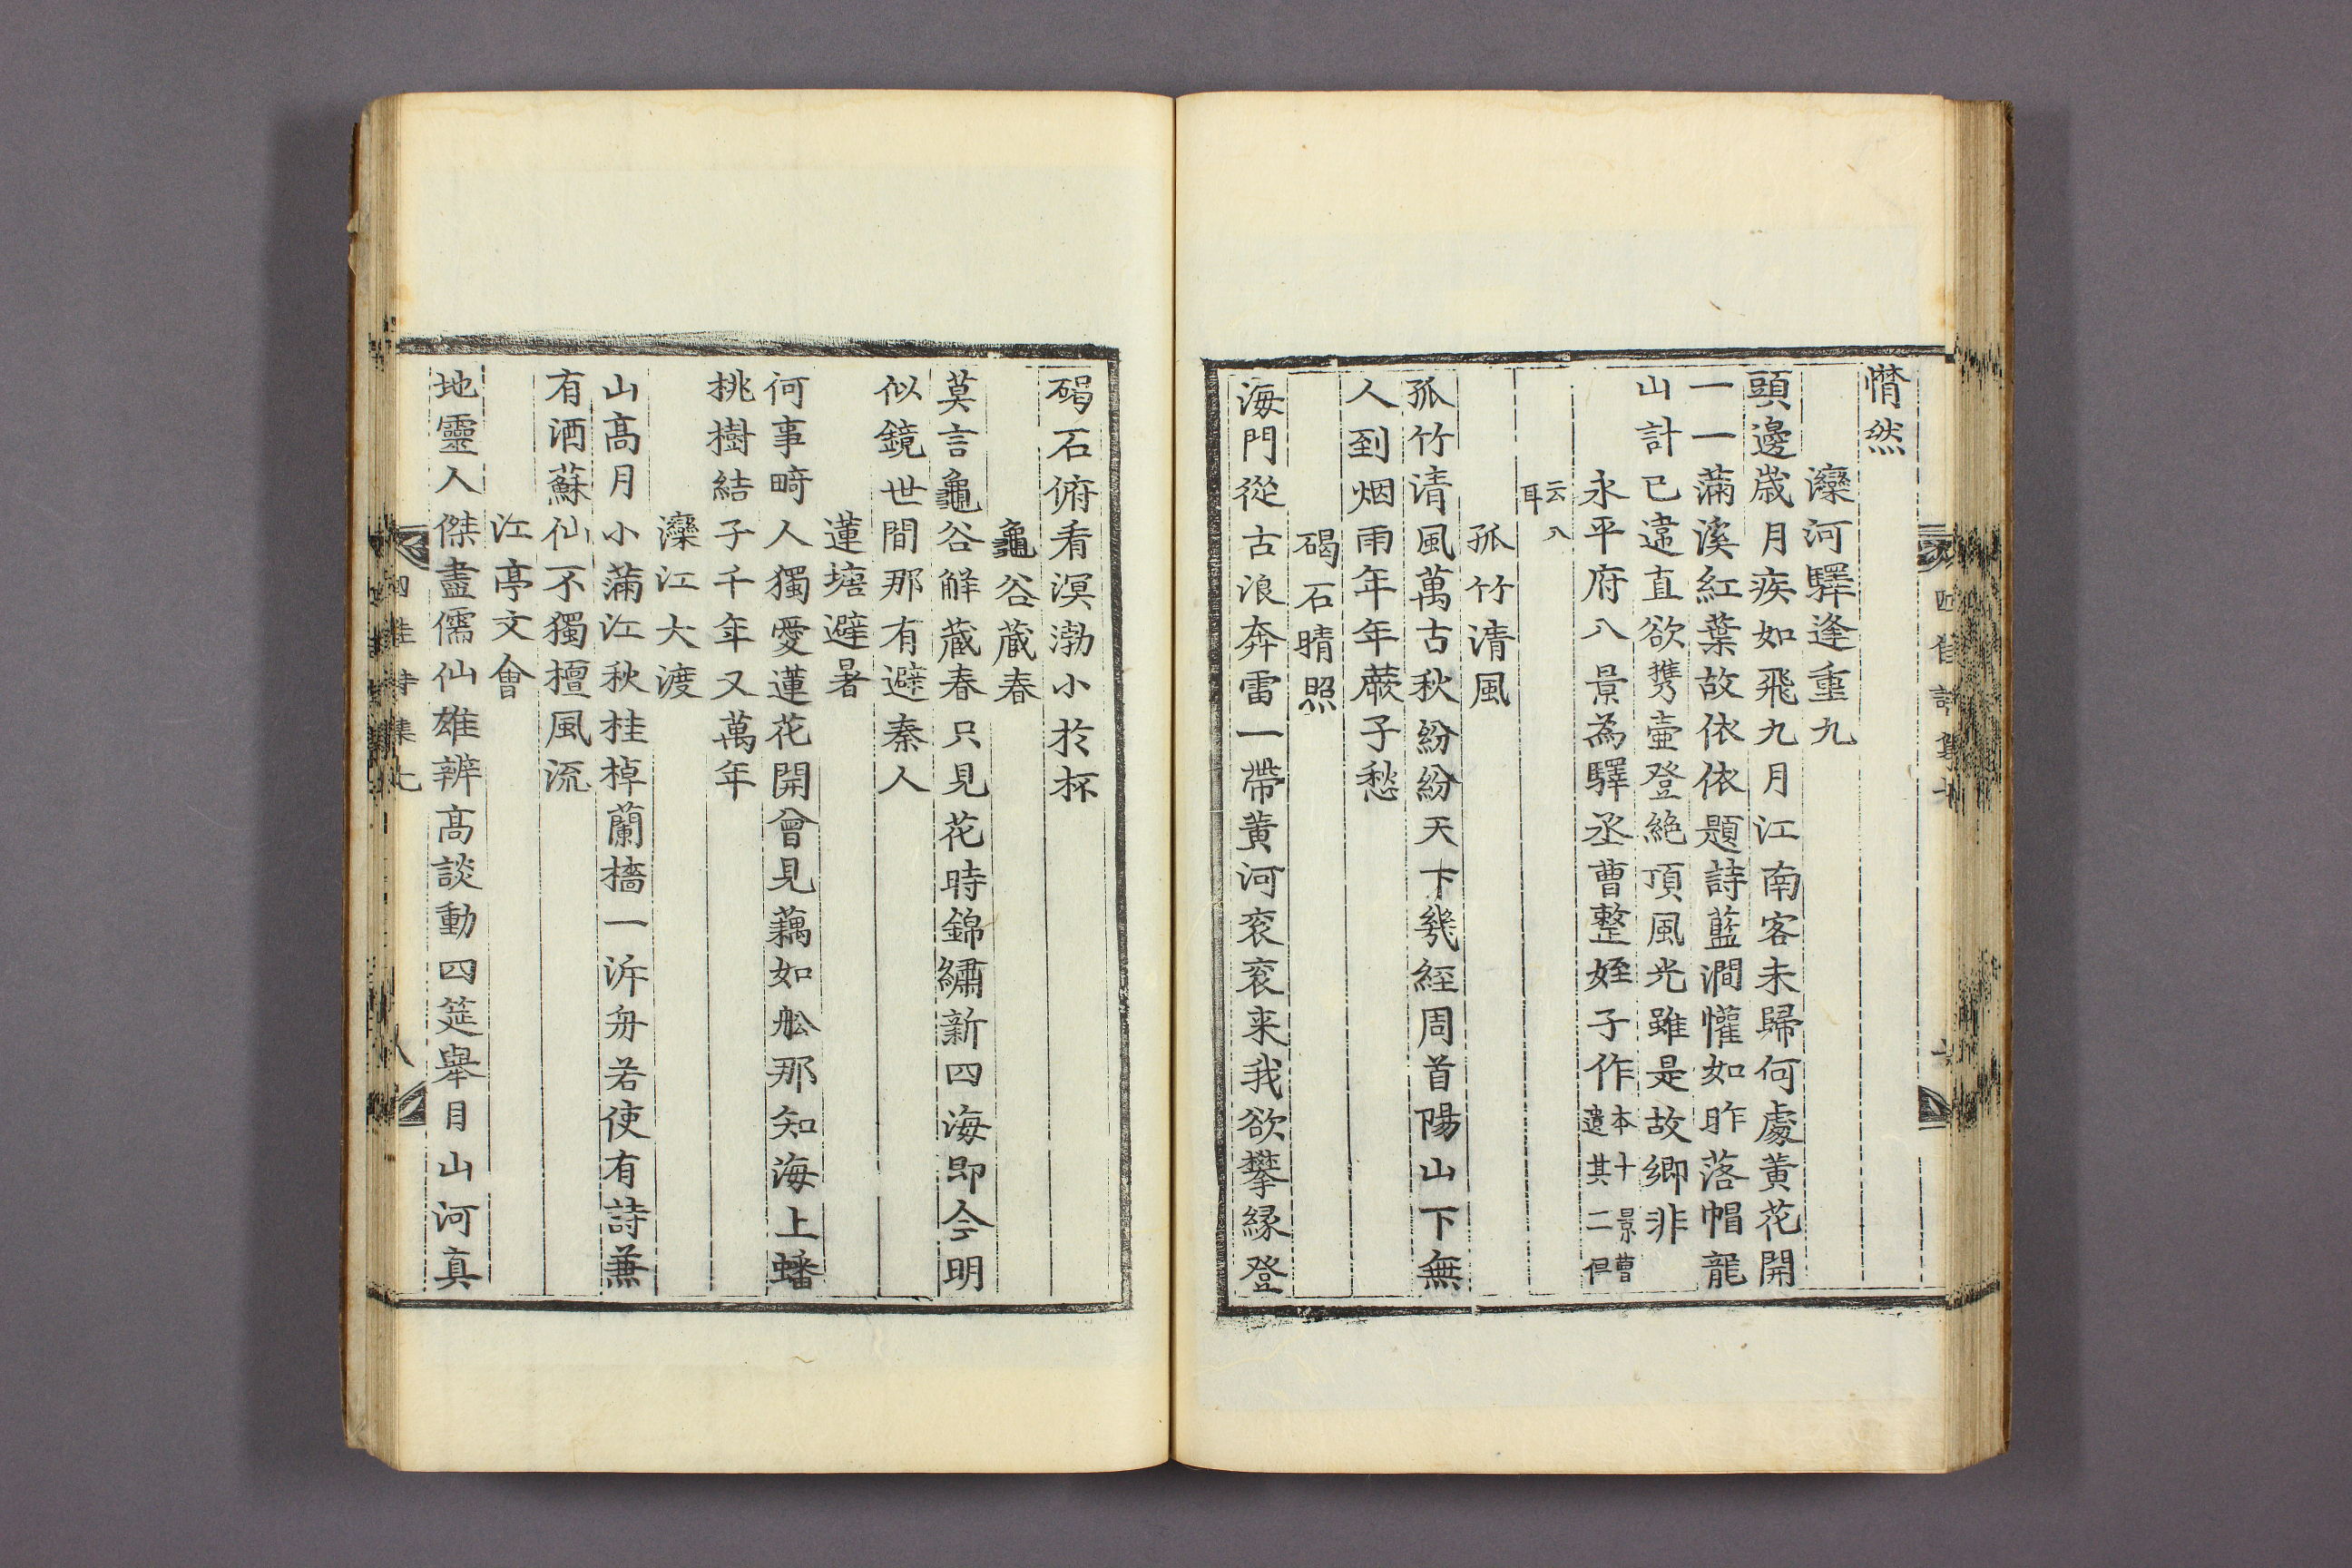 懵然
灤河驛逢重九
頭邊歲月疾如飛九月江南客未歸何處黃花開
一一滿溪紅葉故依依題詩藍澗懽如昨落帽龍
山計已違直欲携壺登絶頂風光雖是故鄕非
永平府八景為驛丞曹整姪子作本十景曹遺其二但
云八耳
孤竹清風
孤竹清風萬古秋紛紛天下幾經周首陽山下無
人到烟雨年年蕨子愁
碣石晴照
海門從古浪奔雷一帶黃河衮衮来我欲攀緣登
碣石俯看溟渤小於杯
龜谷蔵春
莫言龜谷解蔵春只見花時錦繡新四海即今明
似鏡世間那有避秦人
蓮塘避暑
何事畸人獨愛蓮花開曾見藕如舩那知海上蟠
桃樹結子千年又萬年
灤江大渡
山髙月小滿江秋桂棹蘭檣一泝舟若使有詩兼
有酒蘇仙不獨擅風流
江亭文會
地靈人傑盡儒仙雄辨髙談動四筵舉目山河真